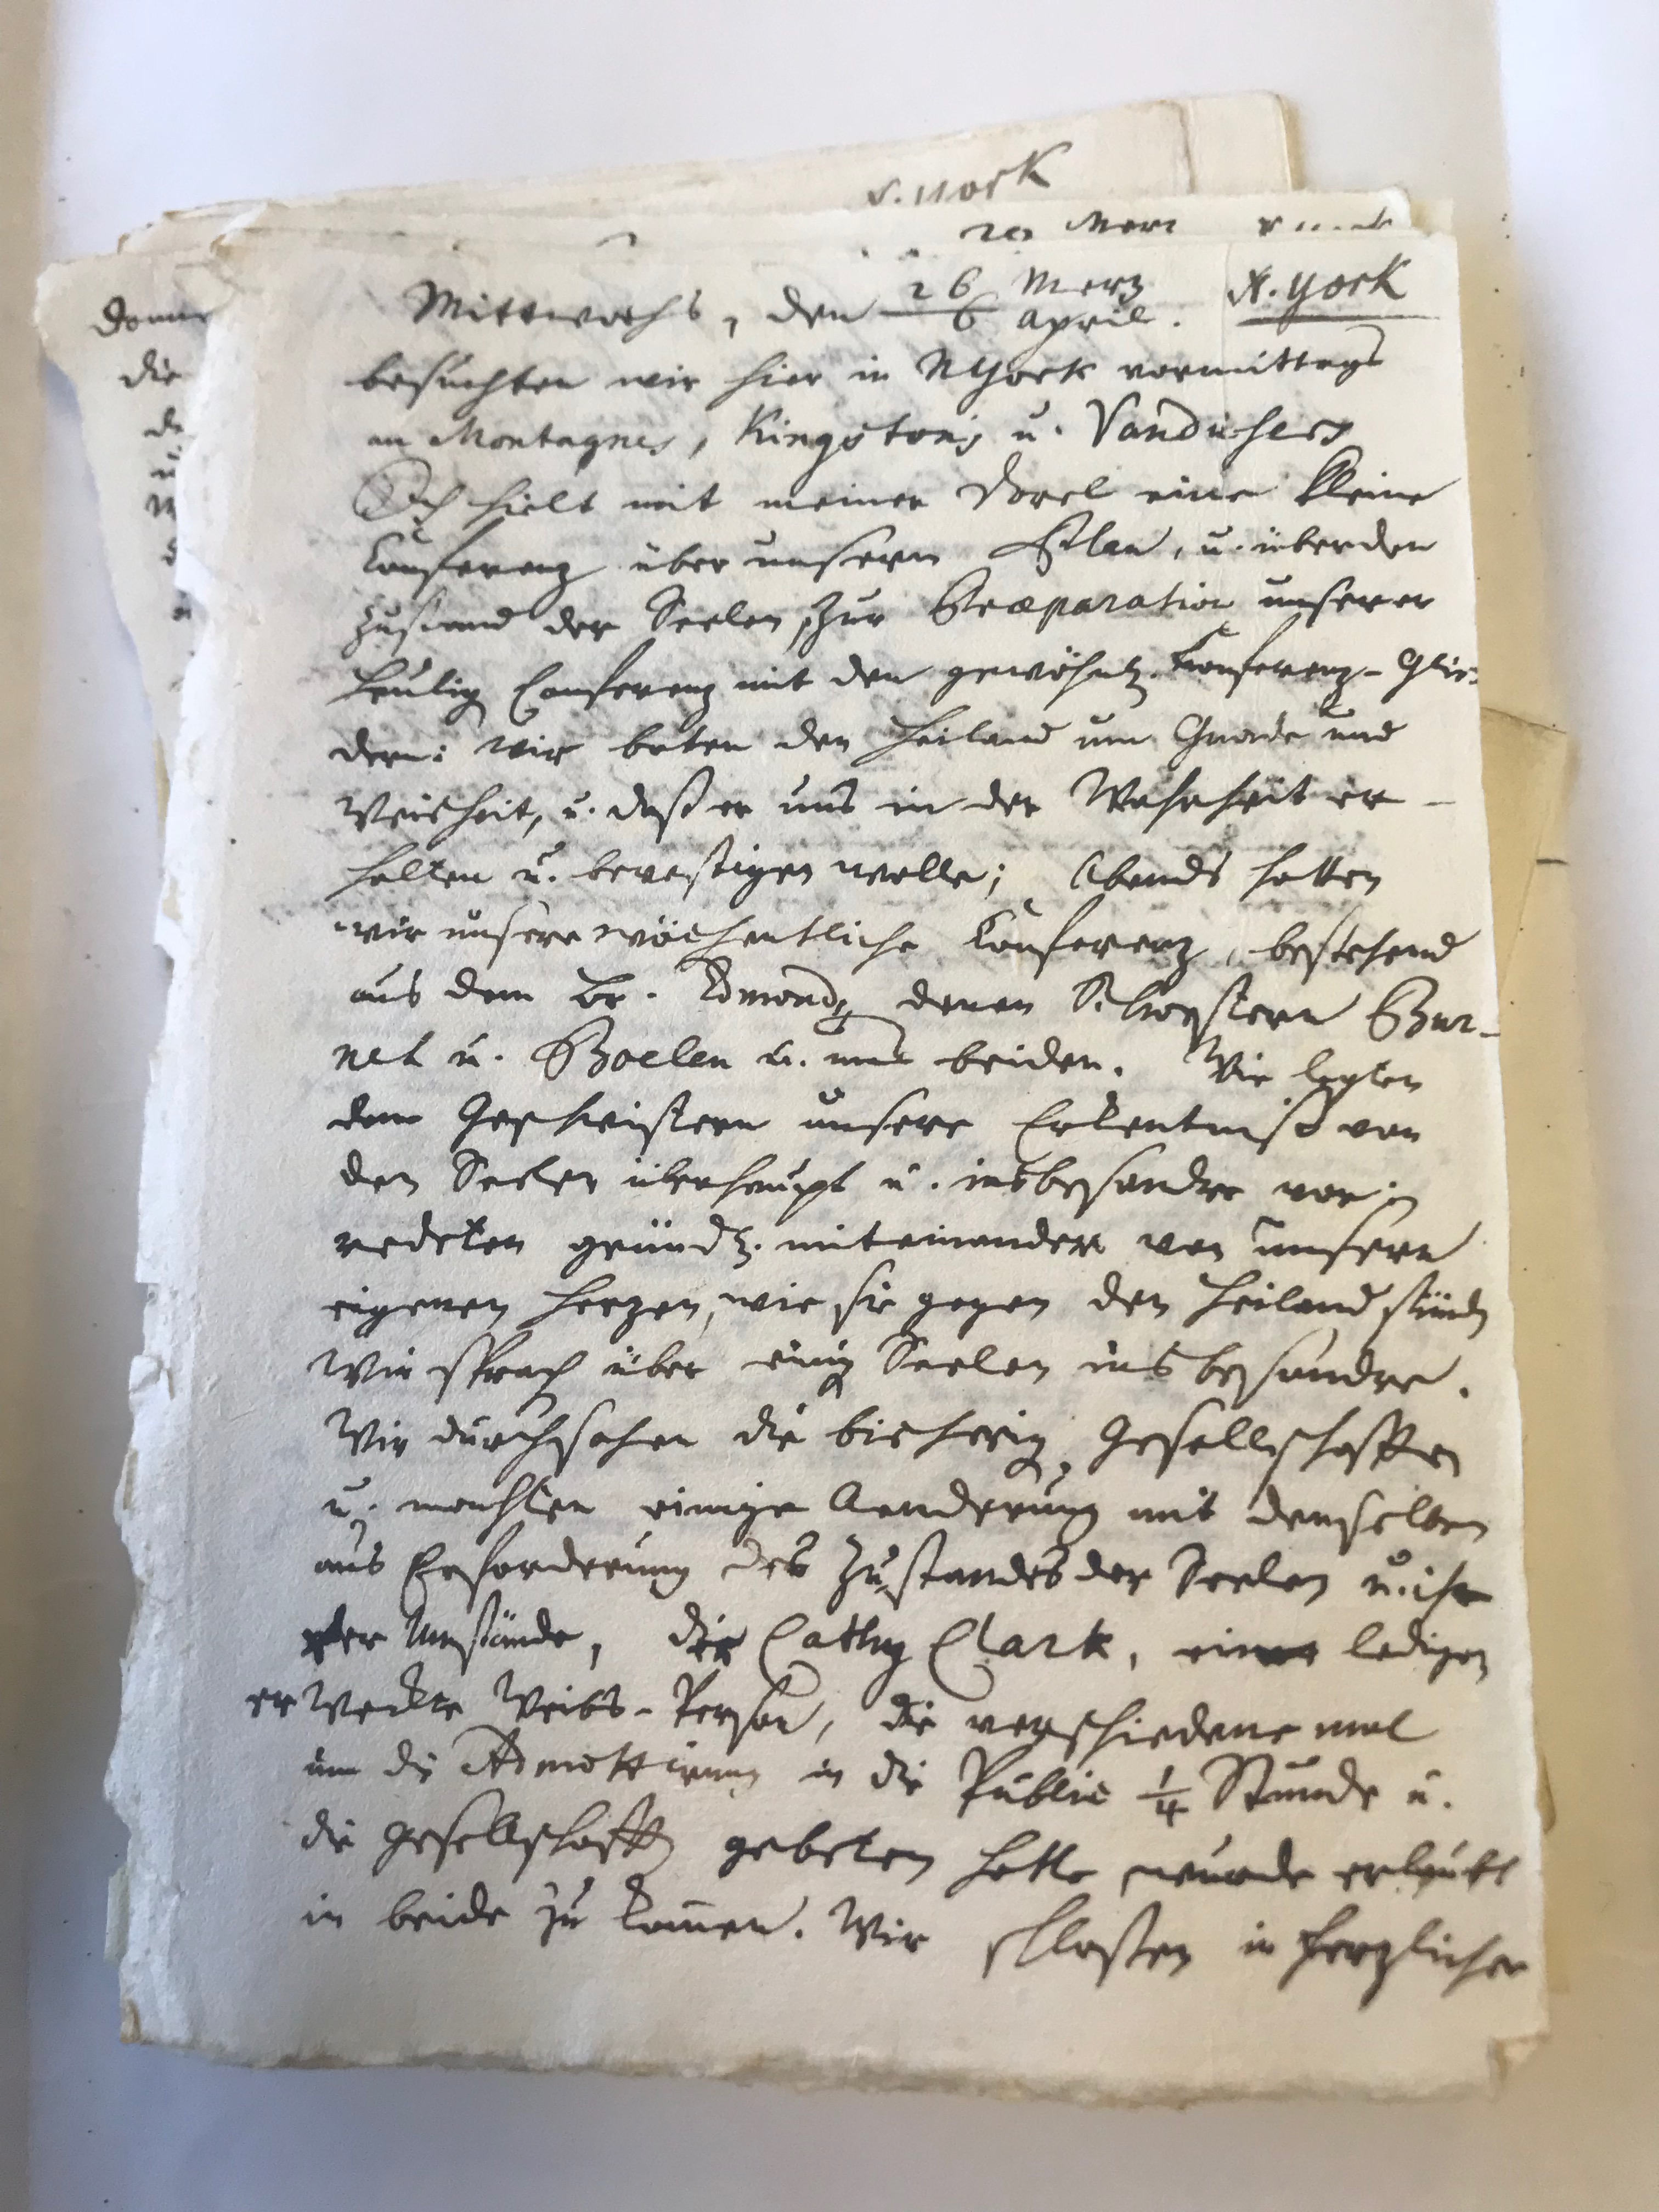 N. York
29 Merz
Mittwochs, den 26 Merz N. York
6 april.
besuchten wir hier in NYork vormittags
an Montagnes, Kingstons u. Vandichers
Ich hielt mit meiner Dorel eine kleine
Conferenz über unsern Plan, u. über den
Zustand der Seelen, zur Præparation unserer
heutig Conferenz mit den gewöhnl. Conferenz-Glie-
dern: wir baten den Heiland um Gnade und
Weisheit, u. daß er uns in der Wahrheit er-
halten u. bevestigen wolle; Abends hatten
wir unsere wöchentliche Conferenz, bestehend
aus dem Br. Edmonds, denen Schwestern Bur-
net u. Boelen u. uns beiden. Wir legten
den Geschwistern unsere Erkentniß von
den Seelen überhaupt u. insbesondre vor;
redeten gründl. miteinander von unsern
eigenen Herzen, wie sie gegen den Heiland stünd
Wir sprach über einig Seelen insbesondre.
Wir durchsahen die bisherig Gesellschafften
u. machten einige Aenderung mit denselben
aus Erforderung des Zustandes der Seelen u. ihr
er Umstände, die Cathy Clark, eine ledigen
erweckte Weibs-Person, die verschiedene mal
um die Admittirung in die Public 1/4 Stunde u.
die Gesellschafft gebeten hatte wurde erlaubt
in beide zu komen. Wir schloßen in herzlicher
Donn
die